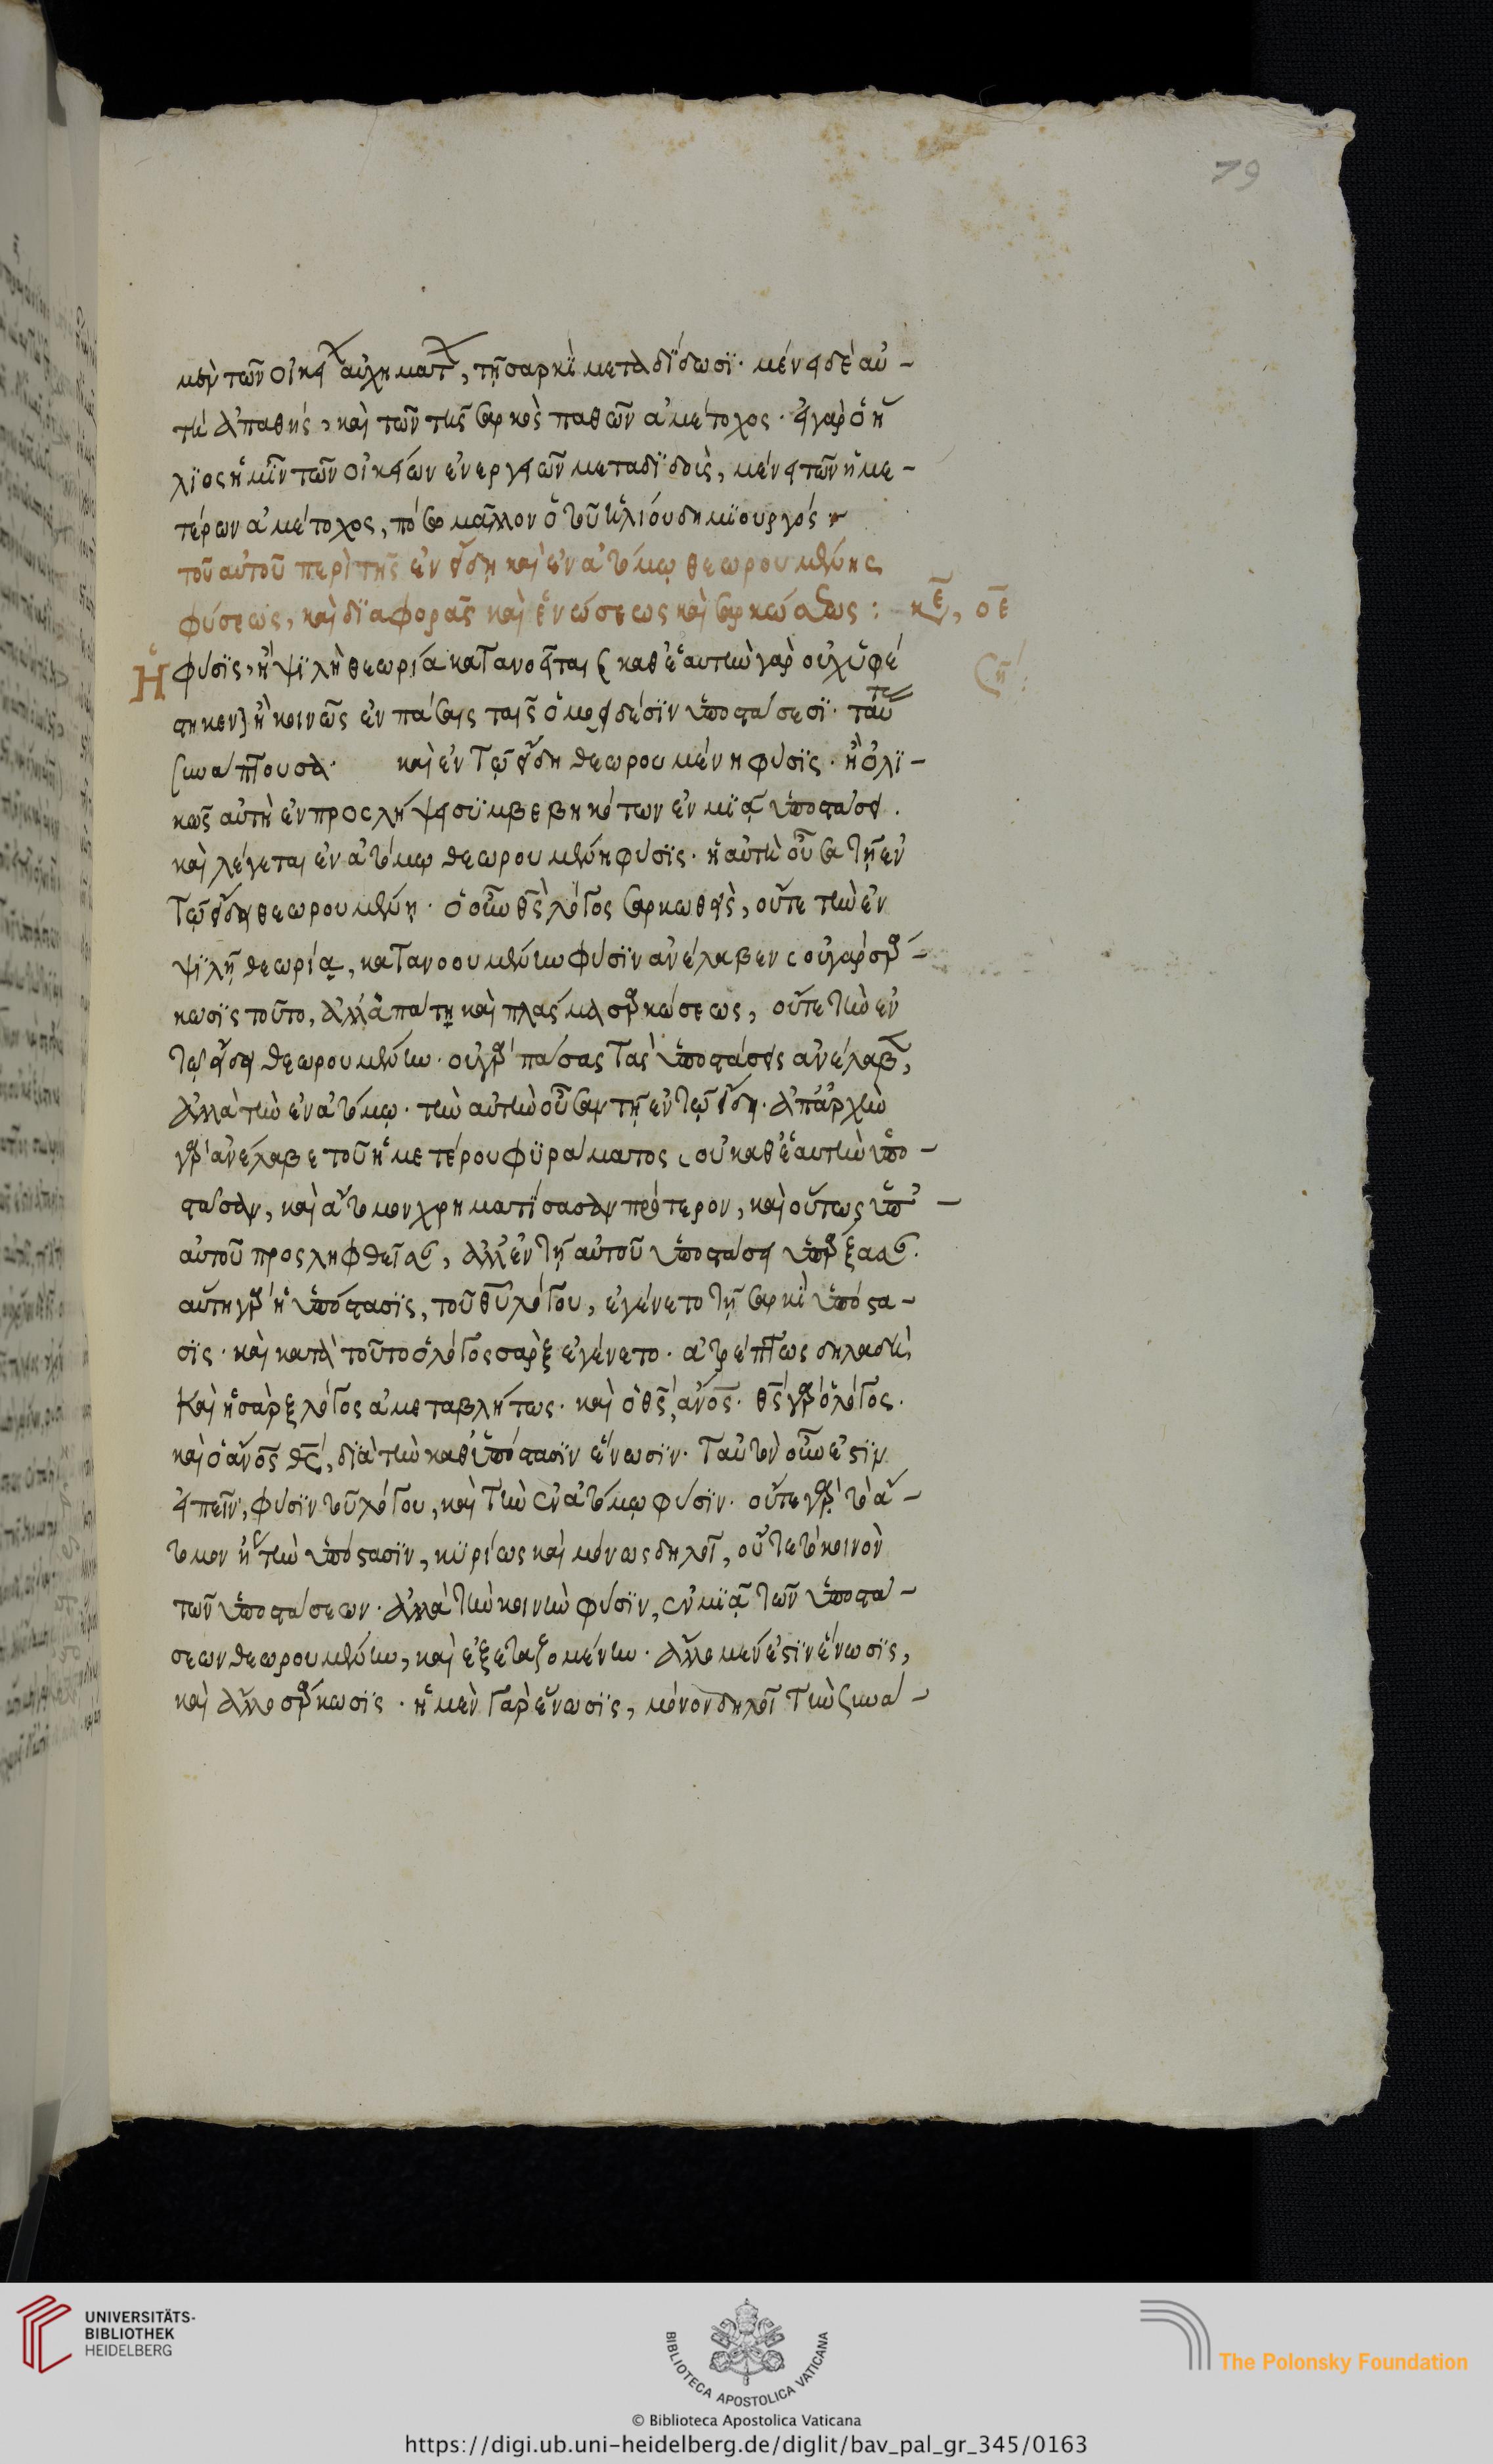 79
μὲν τῶν οἰκείων αὐχημάτων, τῇ σαρκὶ μεταδίδωσι· μένει δὲ αὐ-
τὴ ἀπαθής, καὶ τῶν τῆς σαρκὸς παθῶν ἀμέτοχος· εἰ γὰρ ὁ ἥ
λιος ἡμῖν τῶν οἰκείων ἐνεργειῶν μεταδιδοὺς, μένει τῶν ἡμε-
τέρων ἀμέτοχος, πόσω μᾶλλον ὁ τοῦ ἡλίου δημιουργός
τοῦ αὐτοῦ περὶ τῆς ἐν εἴδη καὶ ἐν ἀτόμῳ θεωρουμένης
φύσεως, καὶ διαφορᾶς καὶ ἑνώσεως καὶ σαρκώσεως: κε, οε
Ἡ φύσις, ἢ ψιλὴ θεωρία κατανοεῖται (καθ' ἑαυτὴν γὰρ οὐχ ὑφέ
στηκεν) ἢ κοινῶς ἐν πάσαις ταῖς ὁμοειδέσιν ὑποστάσεσι· ταύτας
συνάπτουσα· καὶ ἐν τῷ εἴδη θεωρουμένη φύσις· ἢ ὁλι-
κῶς αὐτὴ ἐν προσλήψει συμβεβηκότων ἐν μιᾷ ὑποστάσει.
καὶ λέγεται ἐν ἀτόμῳ θεωρουμένη φύσις· ἡ αὐτὴ οὖσα τῇ ἐν
τῷ εἴδει θεωρουμένῃ· ὁ οὖν θς λόγος σαρκωθεὶς, οὔτε τὴν ἐν
ψιλῇ θεωρίᾳ, κατανοουμένην φύσιν ἀνέλαβεν οὐ γὰρ σάρ-
κωσις τοῦτο, ἀλλ' ἀπάτη καὶ πλάσμα σαρκώσεως, οὔτε τὴν ἐν
τῷ εἴδει θεωρουμένην· οὐ γὰρ πάσας τὰς ὑποστάσεις ἀνέλαβεν,
ἀλλὰ τὴν ἐν ἀτόμῳ· τὴν αὐτὴν οὖσαν τῇ ἐν τῷ εἴδει· ἀπαρχὴν
γὰρ ἀνέλαβε τοῦ ἡμετέρου φυράματος, οὐ καθ' ἑαυτὴν ὑπο-
στᾶσαν, καὶ ἄτομον χρηματίσασαν πρότερον, καὶ οὕτως ὑπ'-
αὐτοῦ προσληφθεῖσαν, ἀλλ' ἐν τῇ αὐτοῦ ὑποστάσει ὑπάρξασαν.
αὕτη γὰρ ἡ ὑπόστασις, τοῦ θυ λόγου, ἐγένετο τῇ σαρκὶ ὑπόστα-
σις· καὶ κατὰ τοῦτο ὁ λόγος σὰρξ ἐγένετο· ἀτρέπτως δηλαδή,
καὶ ἡ σὰρξ λόγος ἀμεταβλήτως· καὶ ὁ θς, ἄνος· θς γὰρ ὁ λόγος.
καὶ ὁ ἄνος θς, διὰ τὴν καθ' ὑπόστασιν ἕνωσιν· ταὐτὸν οὖν ἐστὶν
εἰπεῖν, φύσιν τοῦ λόγου, καὶ τὴν ἐν ἀτόμῳ φύσιν· οὔτε γὰρ τὸ ἄ-
τομον ἤτοι τὴν ὑπόστασιν, κυρίως καὶ μόνως δηλοῖ, οὔτε τὸ κοινὸν
τῶν ὑποστάσεων· ἀλλὰ τὴν κοινὴν φύσιν, ἐν μιᾷ τῶν ὑποστά-
σεων θεωρουμένην, καὶ ἐξεταζομένην· ἄλλο μέν ἐστιν ἕνωσις,
καὶ ἄλλο σάρκωσις· ἡ μὲν γὰρ ἕνωσις, μόνον δηλοῖ τὴν συνά-
UNIVERSITÄTS-
BIBLIOTHEK
HEIDELBERG
BIBLIOTECA APOSTOLICA VATICANA
The Polonsky Foundation
© Biblioteca Apostolica Vaticana
https://digi.ub.uni-heidelberg.de/diglit/bav_pal_gr_345/0163